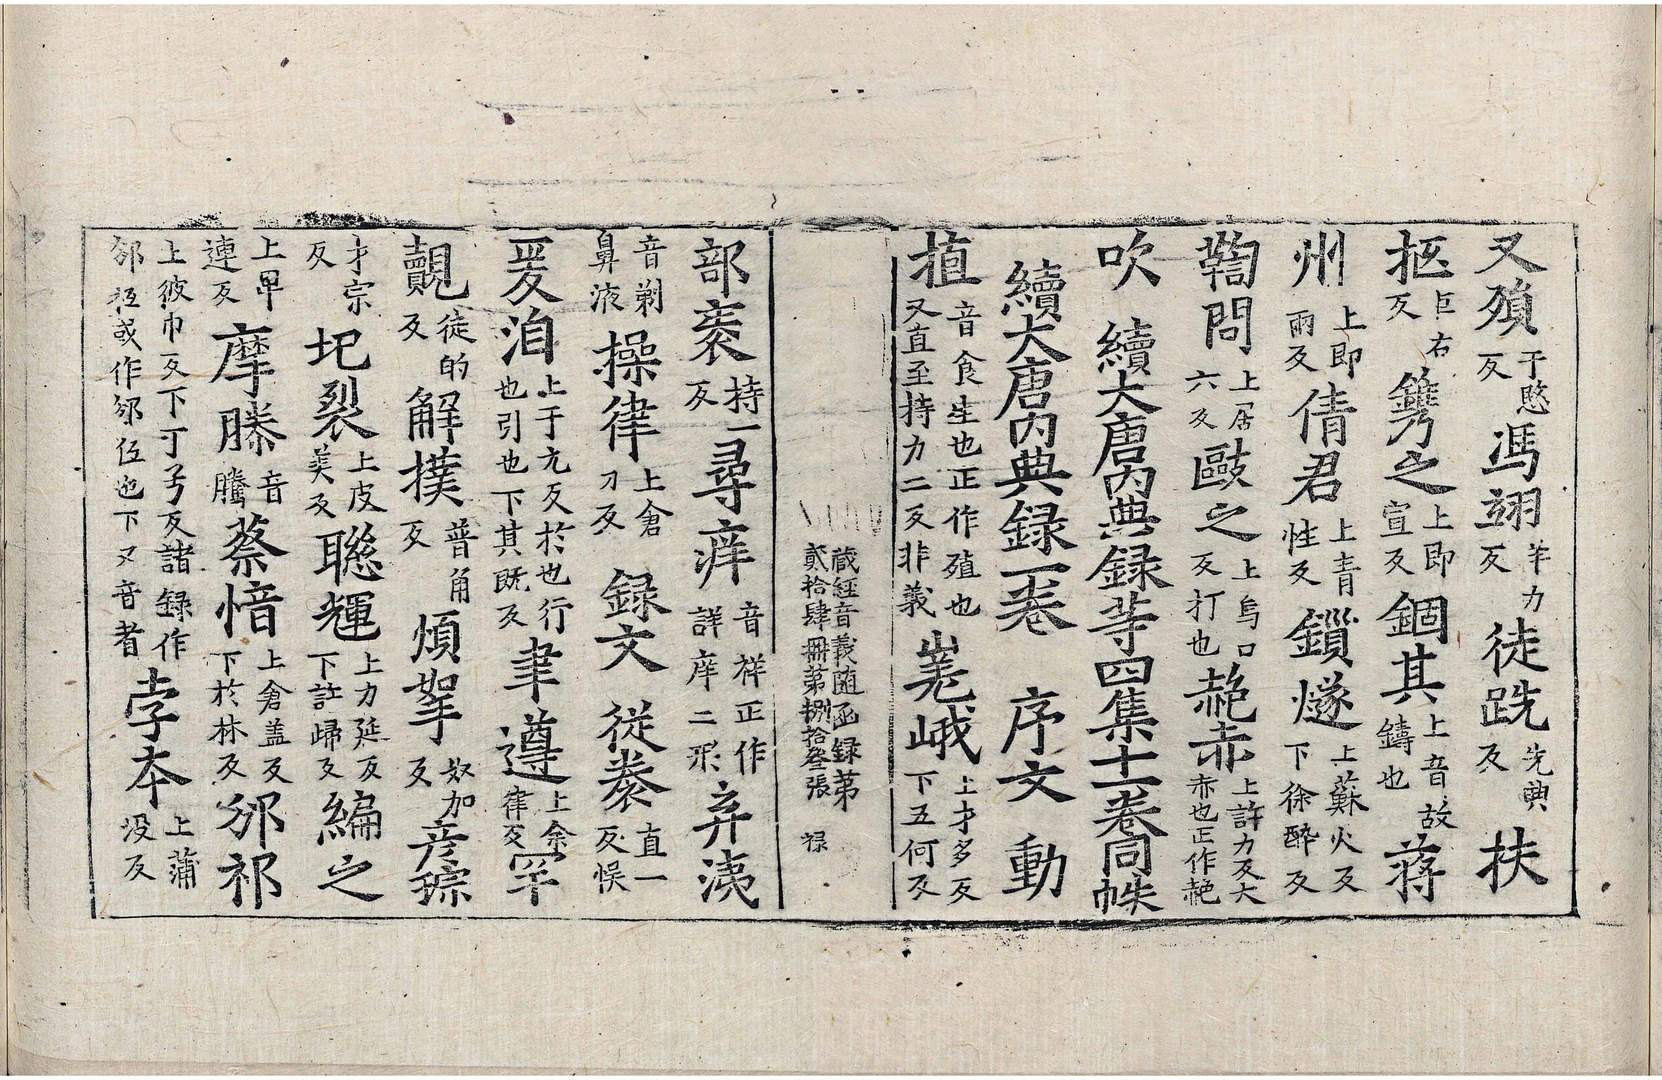 又殞于愍反馮翊羊力反徒跣先典反扶
抠巨右反鐫之上即宣反錮其上音故鑄也蔣
州上即雨反倩君上青性反鏁燧上蘇火反下徐醉反
鞫問上居六反歐之上烏口反打也赩赤上許力反大赤也正作赩
吹　續大唐内典録䒭四集十一卷同帙
續大唐内典録一卷　序文　動
植音食生也正作殖也又直至持力二反非義嵳峨上才多反下五何反
藏經音義随函録第貳拾肆冊第捌拾叁張　禄
部袠持一反尋痒音祥正作詳庠二形弃洟
音剃鼻液操律上倉刀反　録文　從袠直一反悮
爰洎上于元反於也行也引也下其既反聿遵上余律反罕
覿徒的反解撲普角反煩拏奴加反彦琮
才宗反圮裂上皮美反聮輝上力延反下許歸反編之
上卑連反摩騰音騰蔡愔上倉盖反下於林反邠祁
上彼巾反下丁兮反諸録作邠袛或作邠伍也下又音者孛本上蒲没反